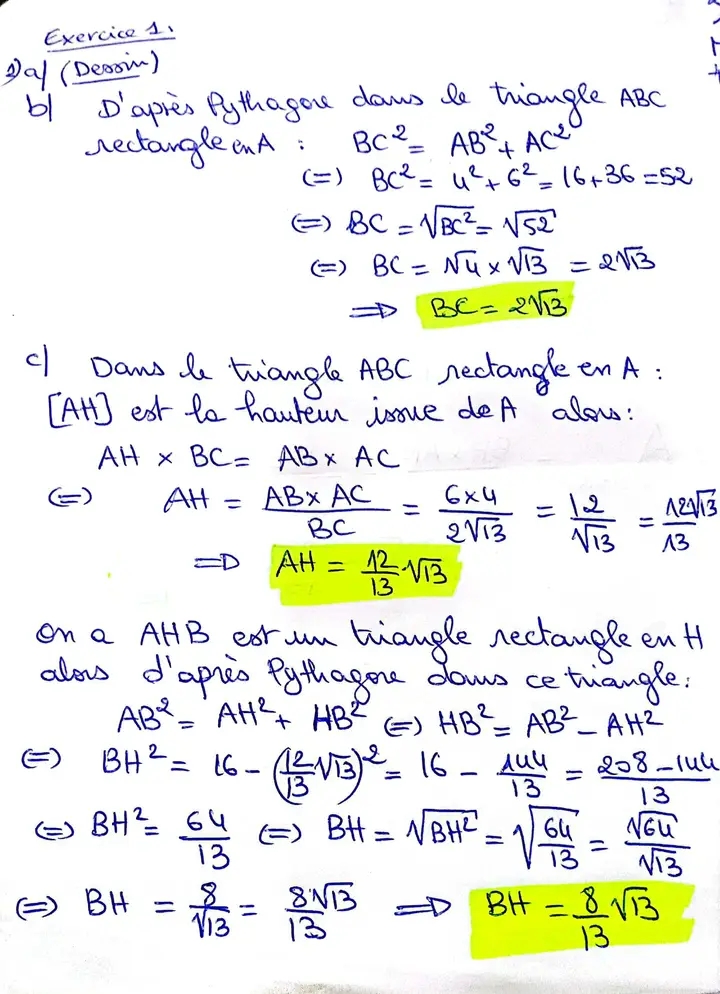 Exercice 1.
1) a/ (Dessin)
b/ D'après Pythagore dans le triangle ABC
rectangle en A : BC² = AB² + AC²
(=) BC² = 4² + 6² = 16 + 36 = 52
(=) BC = √BC² = √52
(=) BC = √4 × √13 = 2√13
=> BC = 2√13
c/ Dans le triangle ABC rectangle en A :
[AH] est la hauteur issue de A alors :
AH × BC = AB × AC
(=) AH = AB × AC / BC = 6×4 / 2√13 = 12/√13 = 12√13/13
=> AH = 12/13 √13
On a AHB est un triangle rectangle en H
alors d'après Pythagore dans ce triangle :
AB² = AH² + HB² (=) HB² = AB² - AH²
(=) BH² = 16 - (12/13 √13)² = 16 - 144/13 = 208 - 144 / 13
(=) BH² = 64/13 (=) BH = √BH² = √64/13 = √64/√13
(=) BH = 8/√13 = 8√13/13 => BH = 8/13 √13